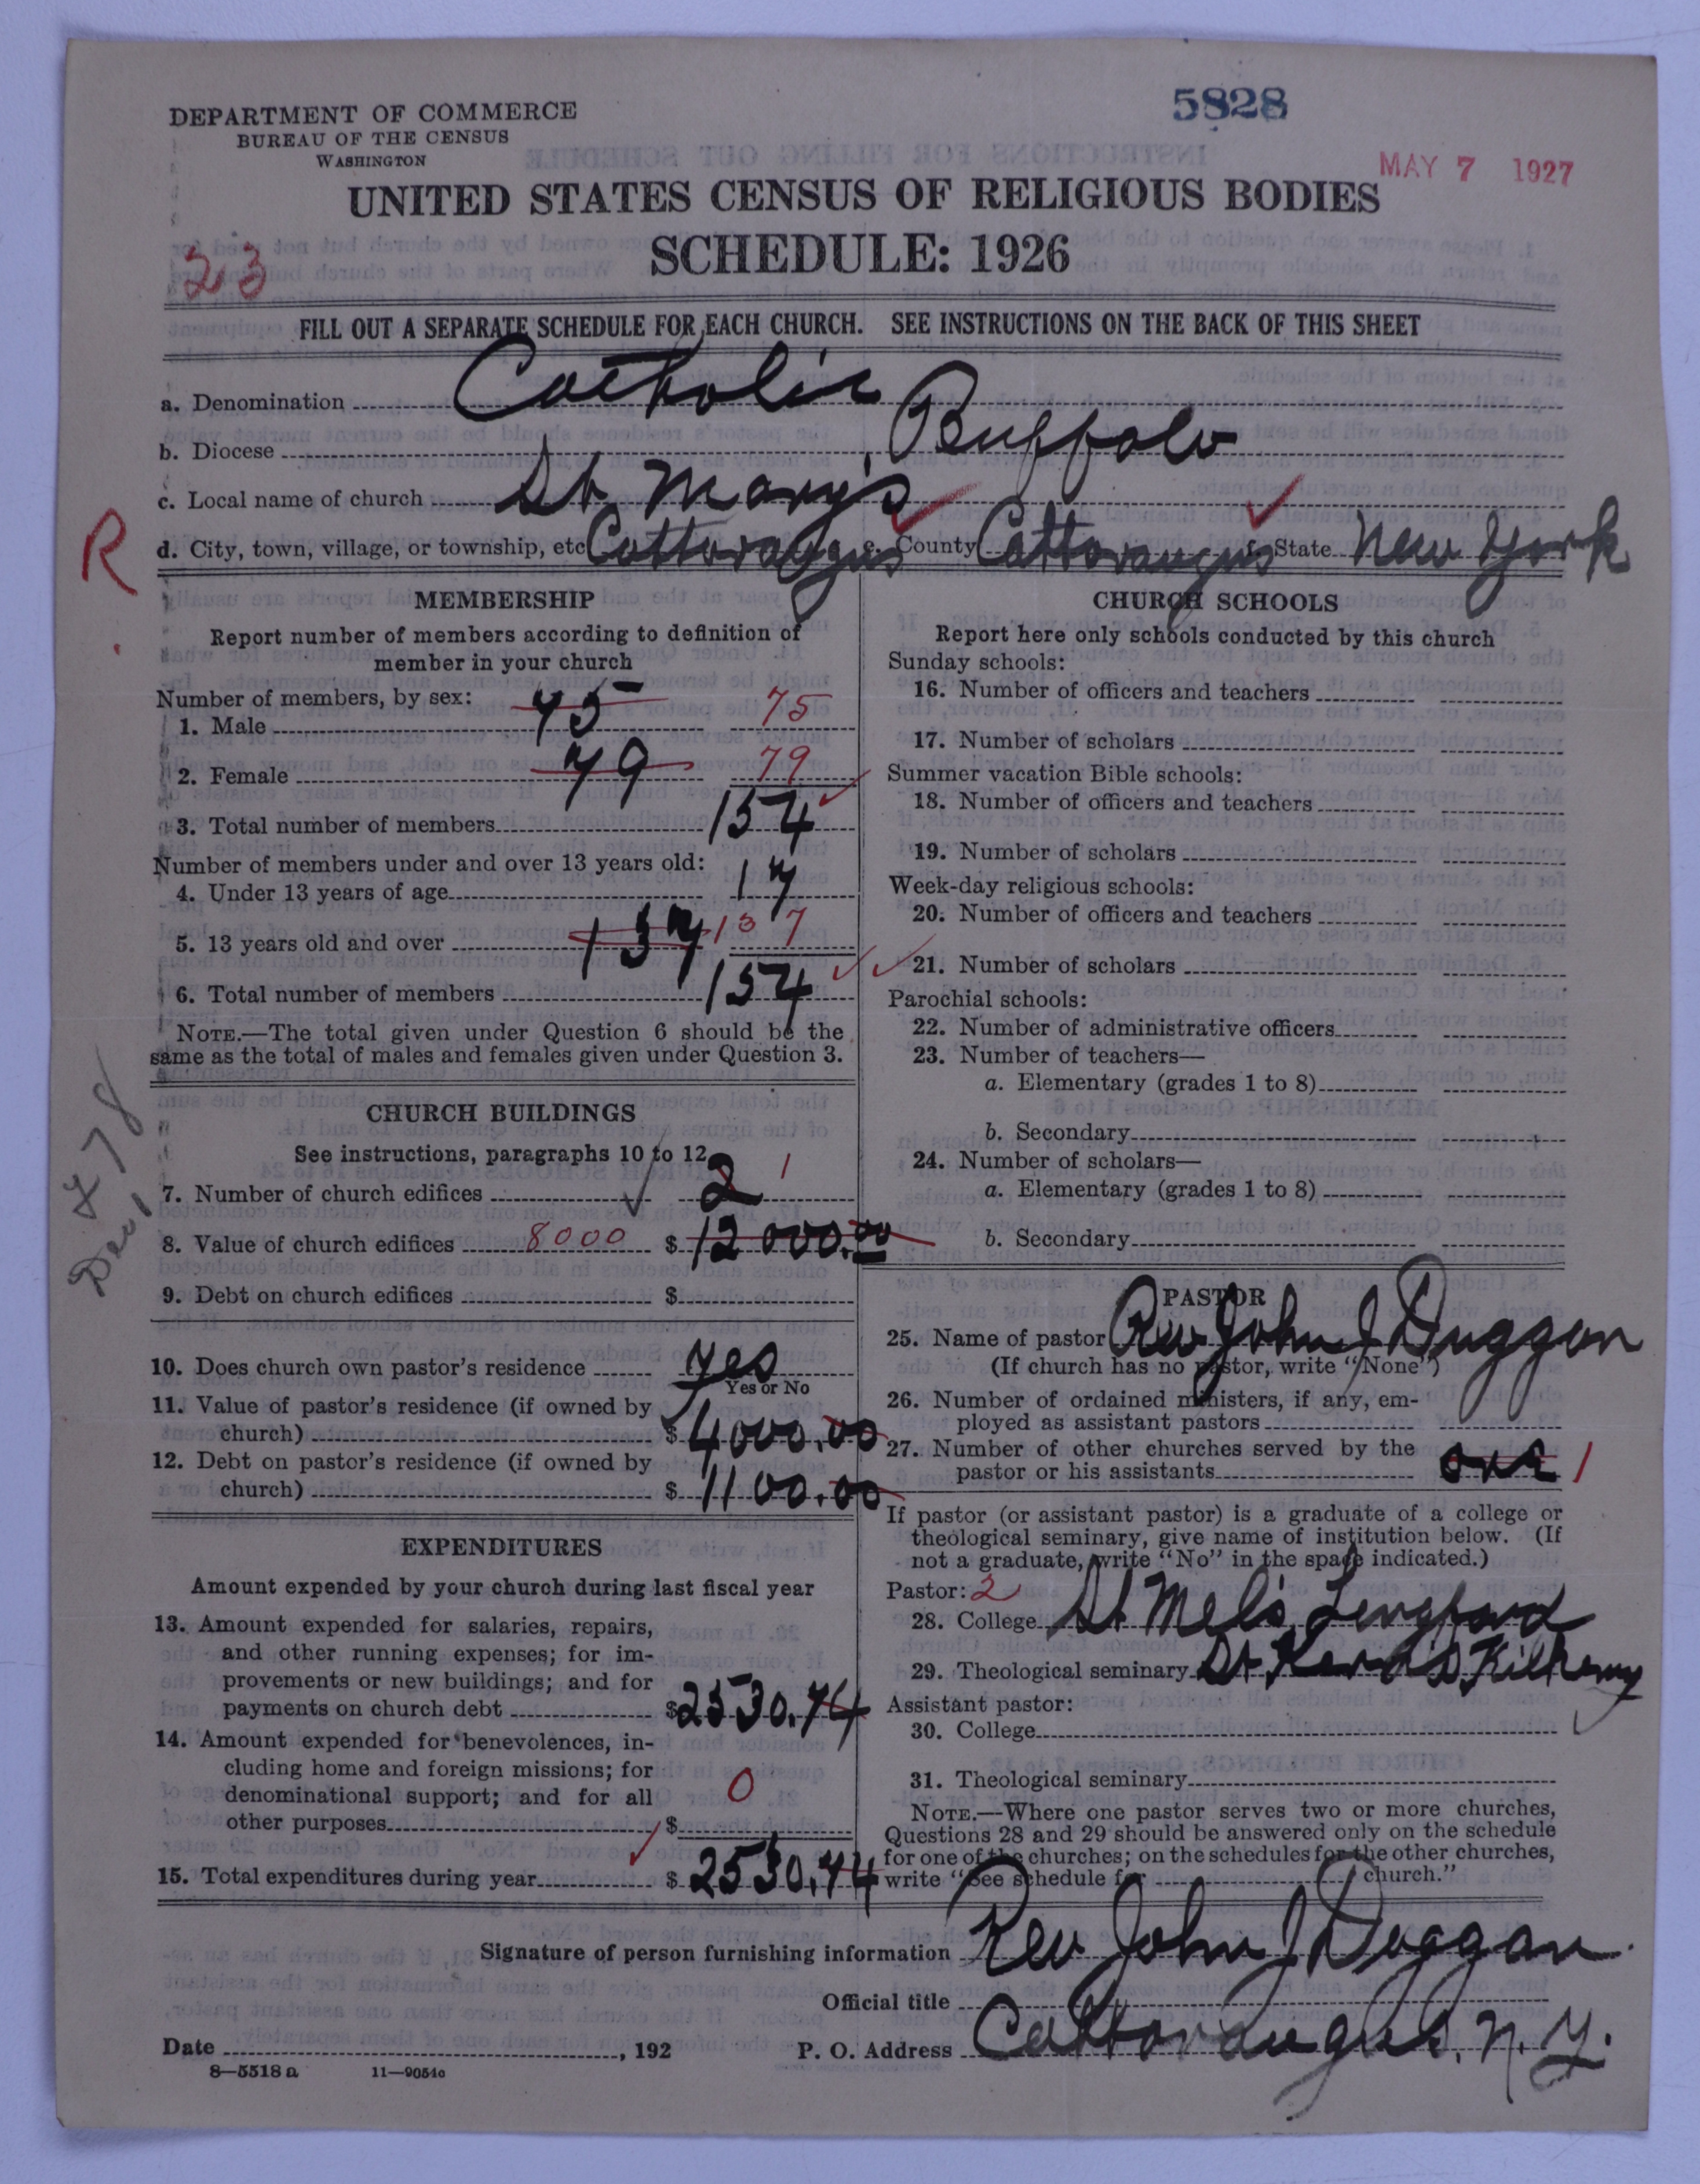 5828
DEPARTMENT OF COMMERCE
BUREAU OF THE CENSUS
WASHINGTON
MAY 7 1927
UNITED STATES CENSUS OF RELIGIOUS BODIES
23
SCHEDULE: 1926
FILL OUT A SEPARATE SCHEDULE FOR EACH CHURCH. SEE INSTRUCTIONS ON THE BACK OF THIS SHEET
a. Denomination Catholic
b. Diocese Buffalo
c. Local name of church St Mary's
R
d. City, town, village, or township, etc Cattaraugus e. County Cattaraugus f. State New York
MEMBERSHIP
Report number of members according to definition of
member in your church
Number of members, by sex:
1. Male 75 75
2. Female 79 79
3. Total number of members 154
Number of members under and over 13 years old:
4. Under 13 years of age 17
5. 13 years old and over 137 137
6. Total number of members 154
NOTE.—The total given under Question 6 should be the
same as the total of males and females given under Question 3.
CHURCH BUILDINGS
See instructions, paragraphs 10 to 12
7. Number of church edifices 2 1
8. Value of church edifices 8000 $ 12000.00
9. Debt on church edifices $
10. Does church own pastor's residence yes
Yes or No
11. Value of pastor's residence (if owned by
church) $ 4000.00
12. Debt on pastor's residence (if owned by
church) $ 1100.00
EXPENDITURES
Amount expended by your church during last fiscal year
13. Amount expended for salaries, repairs,
and other running expenses; for im-
provements or new buildings; and for
payments on church debt $ 2530.74
14. Amount expended for benevolences, in-
cluding home and foreign missions; for
denominational support; and for all
other purposes $ 0
15. Total expenditures during year $ 2530.74
CHURCH SCHOOLS
Report here only schools conducted by this church
Sunday schools:
16. Number of officers and teachers
17. Number of scholars
Summer vacation Bible schools:
18. Number of officers and teachers
19. Number of scholars
Week-day religious schools:
20. Number of officers and teachers
21. Number of scholars
Parochial schools:
22. Number of administrative officers
23. Number of teachers—
a. Elementary (grades 1 to 8)
b. Secondary
24. Number of scholars—
a. Elementary (grades 1 to 8)
b. Secondary
PASTOR
25. Name of pastor Rev John J Duggan
(If church has no pastor, write "None")
26. Number of ordained ministers, if any, em-
ployed as assistant pastors
27. Number of other churches served by the
pastor or his assistants one 1
If pastor (or assistant pastor) is a graduate of a college or
theological seminary, give name of institution below. (If
not a graduate, write "No" in the space indicated.)
Pastor: 2
28. College St Mel's Longford
29. Theological seminary St Kilkenny
Assistant pastor:
30. College
31. Theological seminary
NOTE.—Where one pastor serves two or more churches,
Questions 28 and 29 should be answered only on the schedule
for one of the churches; on the schedules for the other churches,
write "See schedule for church."
Signature of person furnishing information Rev John J Duggan
Official title
Date , 192 P. O. Address Cattaraugus, N.Y.
8—5518 a 11—9051c